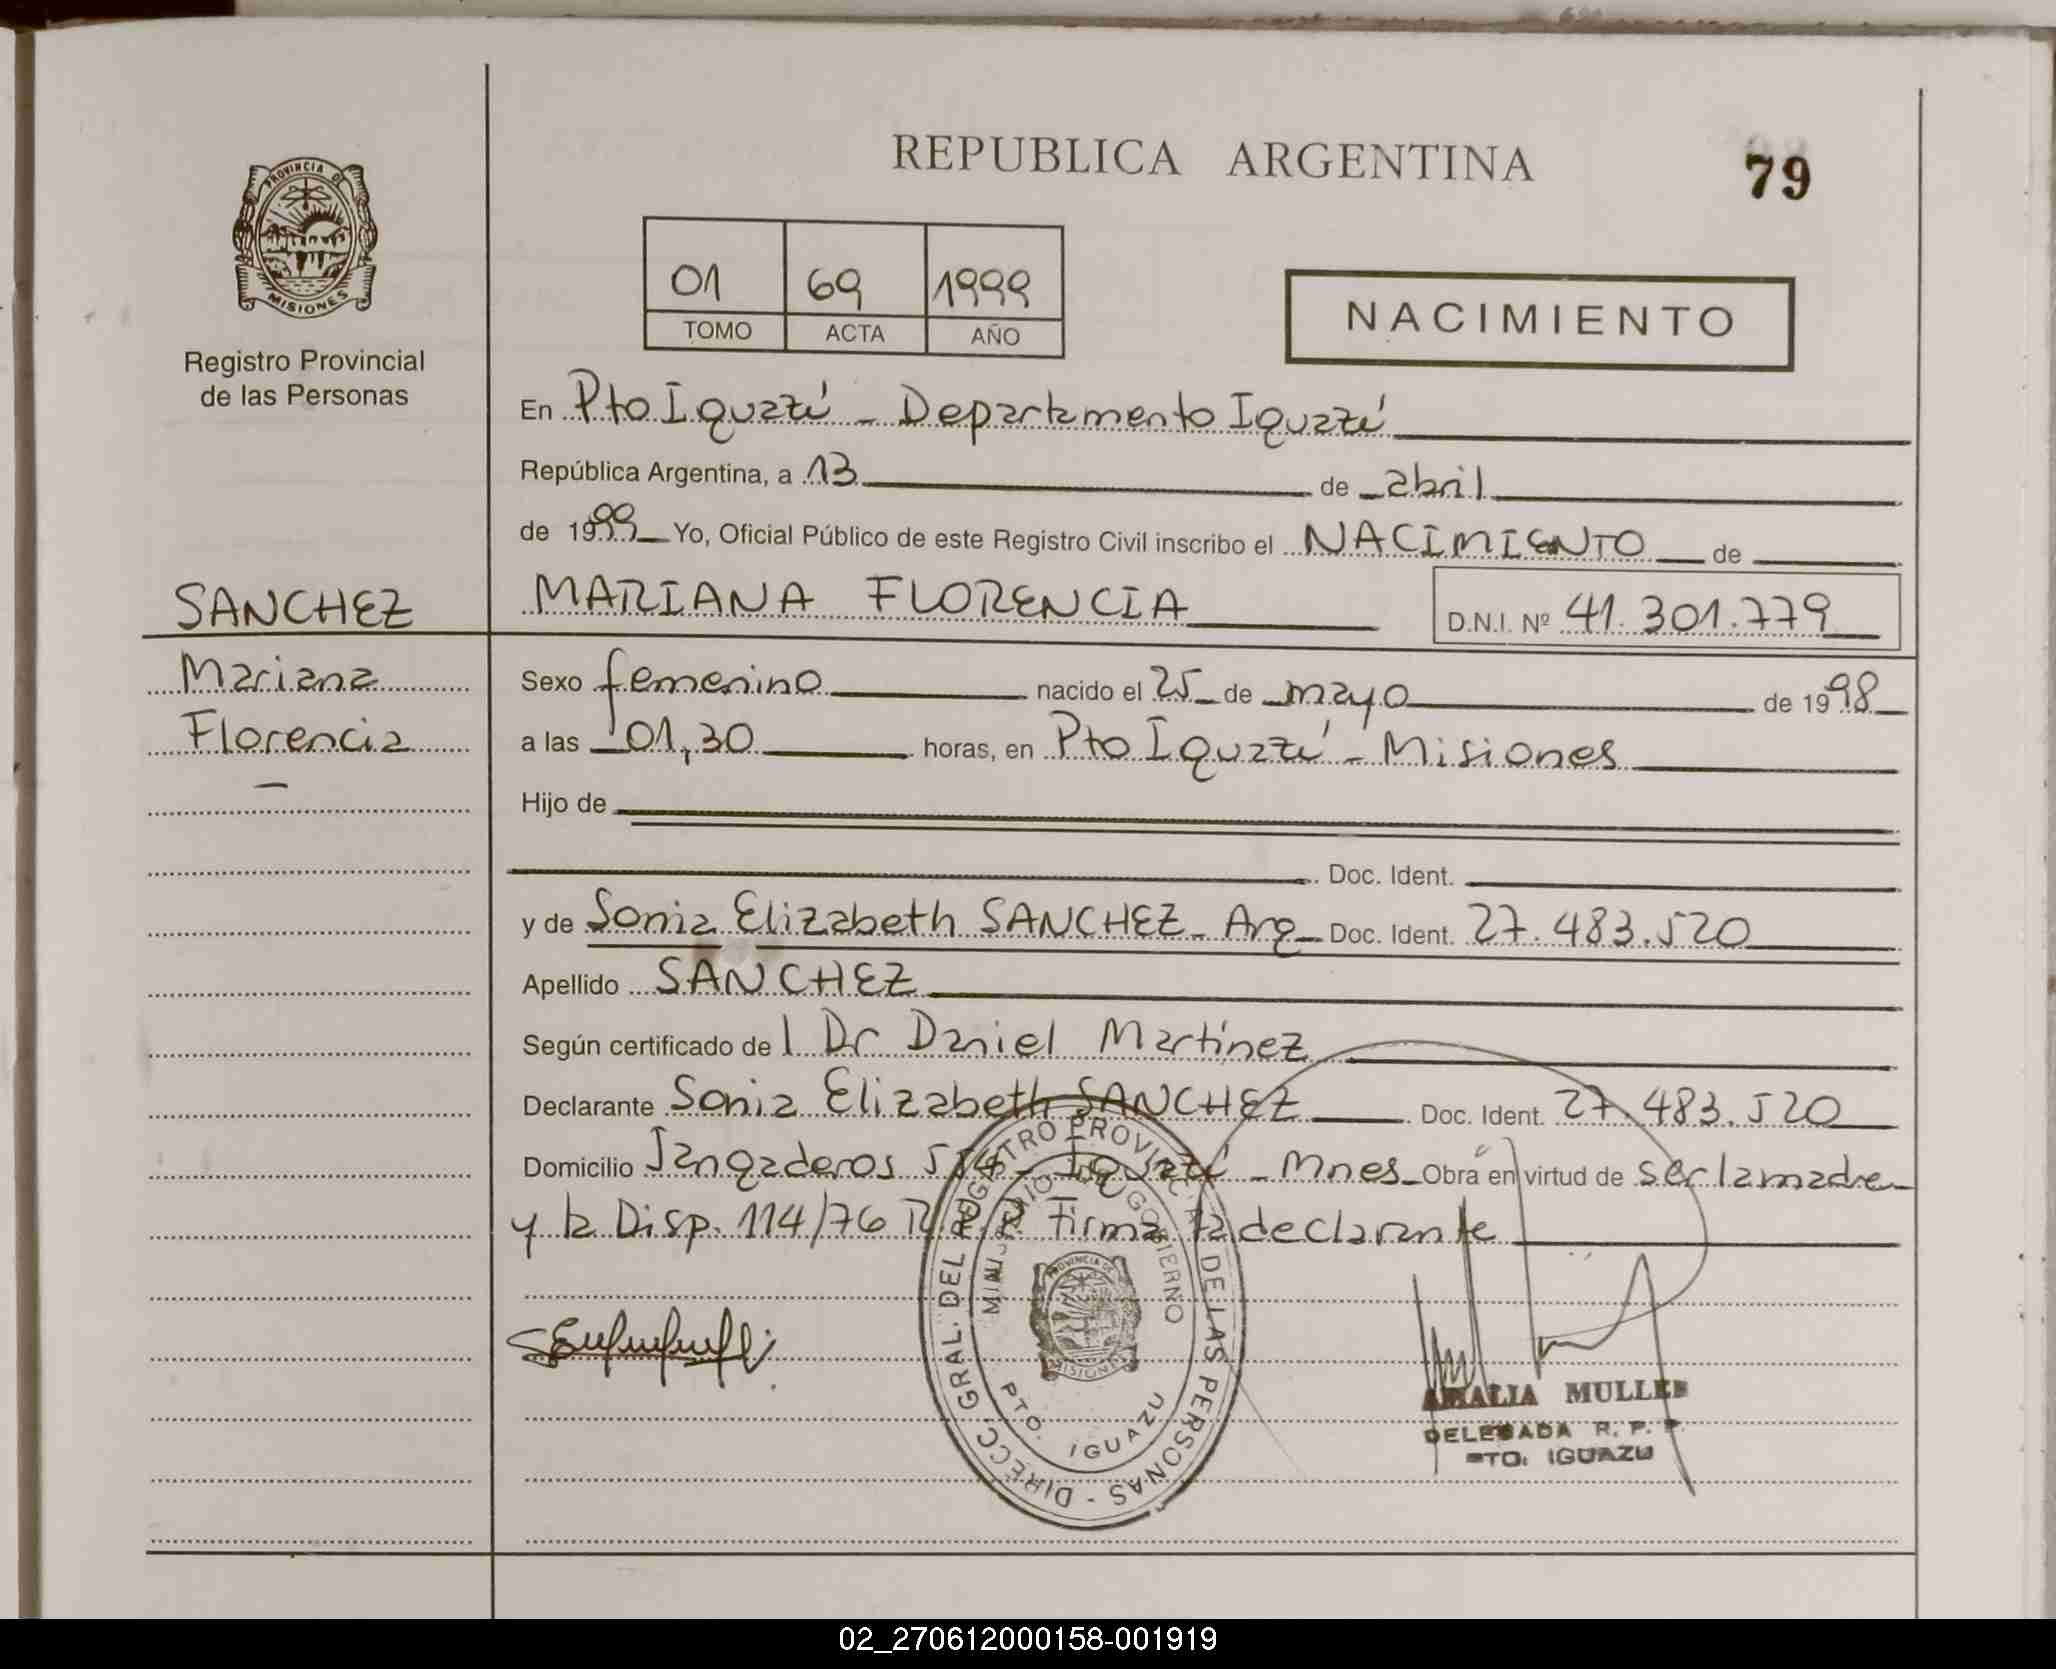 REPUBLICA ARGENTINA
79
PROVINCIA DE
MISIONES
Registro Provincial
de las Personas
01 69 1999
TOMO ACTA AÑO
NACIMIENTO
En Pto Iguazú - Departamento Iguazú
República Argentina, a 13 de abril
de 1999 Yo, Oficial Público de este Registro Civil inscribo el NACIMIENTO de
SANCHEZ
MARIANA FLORENCIA D.N.I. Nº 41.301.779
Mariana
Florencia
Sexo femenino nacido el 25 de mayo de 1998
a las 01,30 horas, en Pto Iguazú - Misiones
Hijo de
Doc. Ident.
y de Sonia Elizabeth SANCHEZ - Arg - Doc. Ident. 27.483.520
Apellido SANCHEZ
Según certificado del Dr Daniel Martínez
Declarante Sonia Elizabeth SANCHEZ Doc. Ident. 27.483.520
Domicilio Jangaderos - Iguazú - Mnes - Obra en virtud de ser la madre
y la Disp. 114/76 R.P.P. Firma la declarante
DIRECC. GRAL. DEL REGISTRO PROVINCIAL DE LAS PERSONAS -
MINISTERIO DE GOBIERNO
PROVINCIA DE
MISIONES
PTO. IGUAZU
AMALIA MULLER
DELEGADA R. P. P.
PTO. IGUAZU
02_270612000158-001919